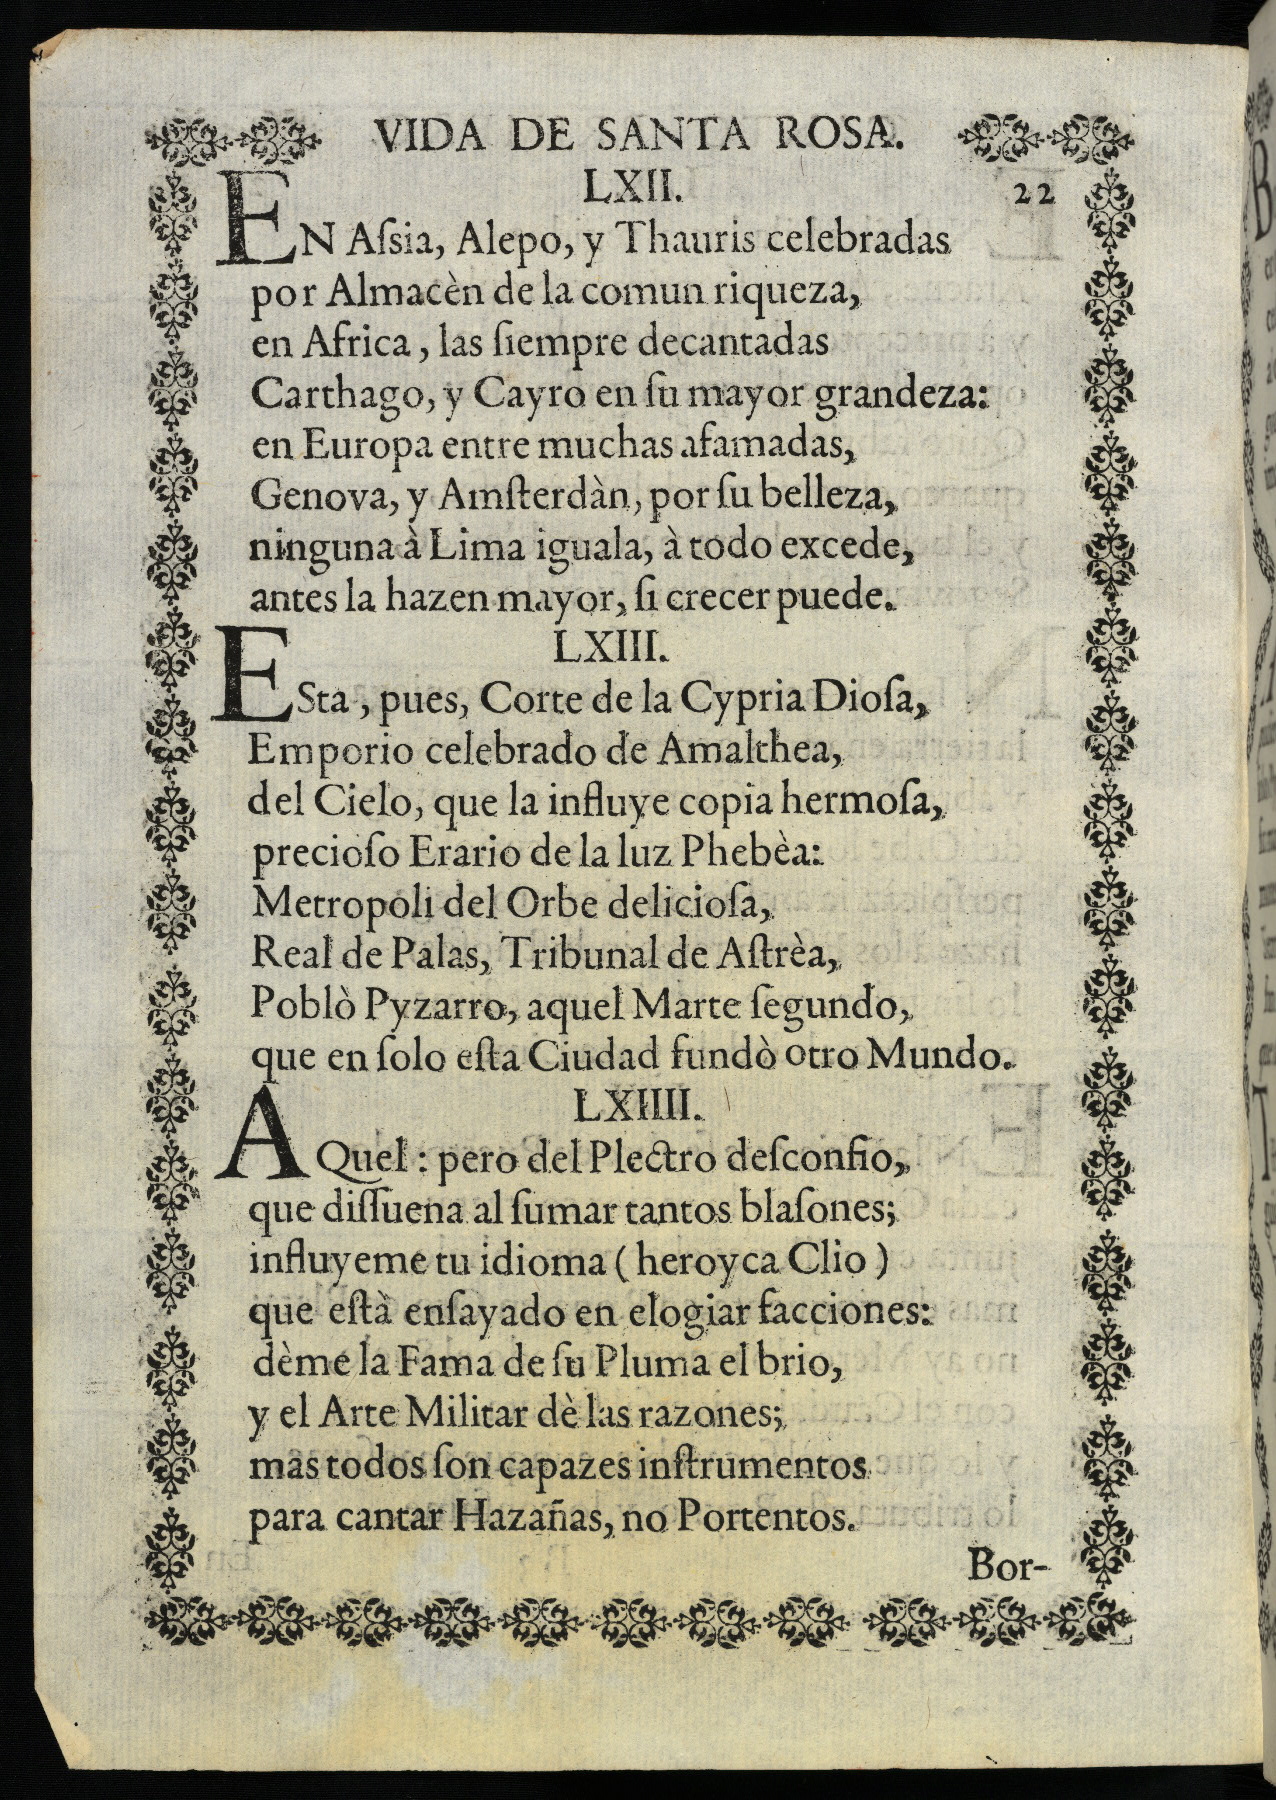 VIDA DE SANTA ROSA.
LXII.
22
EN Aſsia, Alepo, y Thauris celebradas
por Almacèn de la comun riqueza,
en Africa, las ſiempre decantadas
Carthago, y Cayro en ſu mayor grandeza:
en Europa entre muchas afamadas,
Genova, y Amſterdàn, por ſu belleza,
ninguna à Lima iguala, à todo excede,
antes la hazen mayor, ſi crecer puede.
LXIII.
ESta, pues, Corte de la Cypria Dioſa,
Emporio celebrado de Amalthea,
del Cielo, que la influye copia hermoſa,
precioſo Erario de la luz Phebèa:
Metropoli del Orbe delicioſa,
Real de Palas, Tribunal de Aſtrèa,
Poblò Pyzarro, aquel Marte ſegundo,
que en ſolo eſta Ciudad fundò otro Mundo.
LXIIII.
AQuel: pero del Plectro deſconfio,
que diſſuena al ſumar tantos blaſones;
influyeme tu idioma (heroyca Clio)
que eſtà enſayado en elogiar facciones:
dème la Fama de ſu Pluma el brio,
y el Arte Militar dè las razones;
mas todos ſon capazes inſtrumentos
para cantar Hazañas, no Portentos.
Bor-